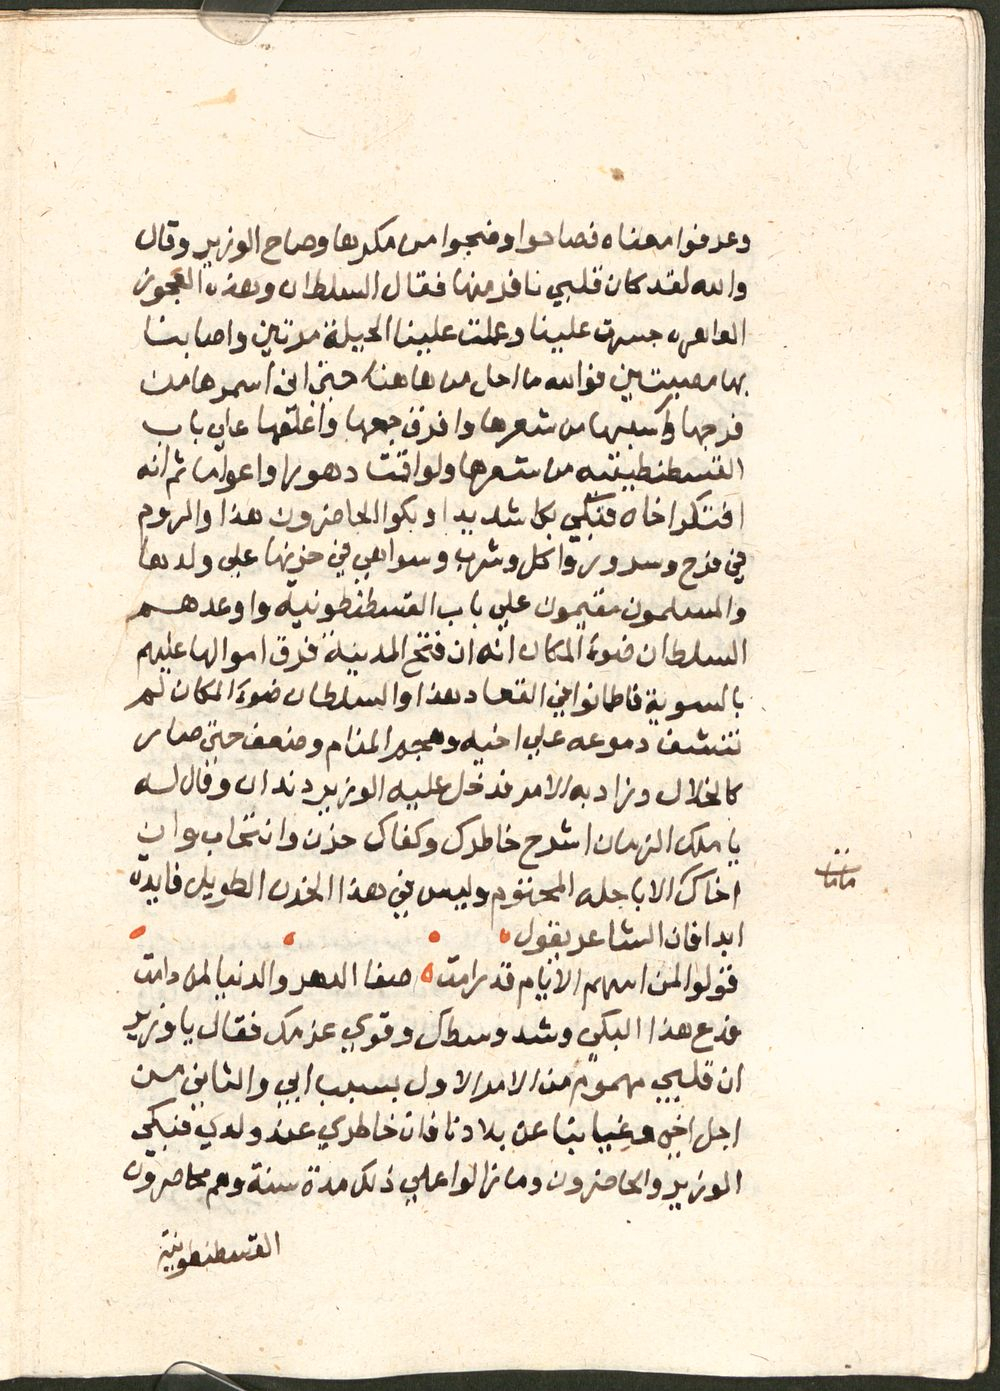 وعرفوا معناه فصاحوا وضجوا من مكرها وصاح الوزير وقال
والله لقد كان قلبي نافر منها فقال السلطان وهذه العجوز
العاهره جسرت علينا وعملت علينا الحيلة مرتين واصابتنا
بها مصيبتين فوالله ما احل من هاهنا حتى اني اسمرها من
فرجها واسبها من شعرها وافرق جمعها واعلقها علي باب
القسطنطينيه من شعرها ولو اقمت دهورا واعواما ثم انه
افتكر اخاه فبكي بكا شديدا وبكوا الحاضرون هذا والروم
في فرح وسرور واكل وشرب وسواهي في حزنها على ولدها
والمسلمون مقيمون علي باب القسطنطونية واوعدهم
السلطان ضوء المكان انه ان فتح المدينة فرق اموالها عليهم
بالسوية فاطمانوا في القعاد هذا والسلطان ضوء المكان لم
تنشف دموعه علي اخيه وهجر المنام وضعف حتى صار
كالخلال وزاد به الامر فدخل عليه الوزير دندان وقال له
يا ملك الزمان اشرح خاطرك وكفاك حزن وانتحاب وان
اخاك الا باجله المحتوم وليس في هذا الحزن الطويل فايدة
ابدا فان الشاعر يقول
ماماتا
قولوا لمن اسهم الايام قد رامت صفا الدهر والدنيا لمن دامت
فدع هذا البكي وشد وسطك وقوي عزمك فقال يا وزير
ان قلبي مهموم من الامر الاول بسبب ابي والثاني من
اجل اخي وغيابنا عن بلادنا فان خاطري عند ولدي فبكى
الوزير والحاضرون وما زالوا علي ذلك مدة سنة وهم محاصرون
القسطنطونية